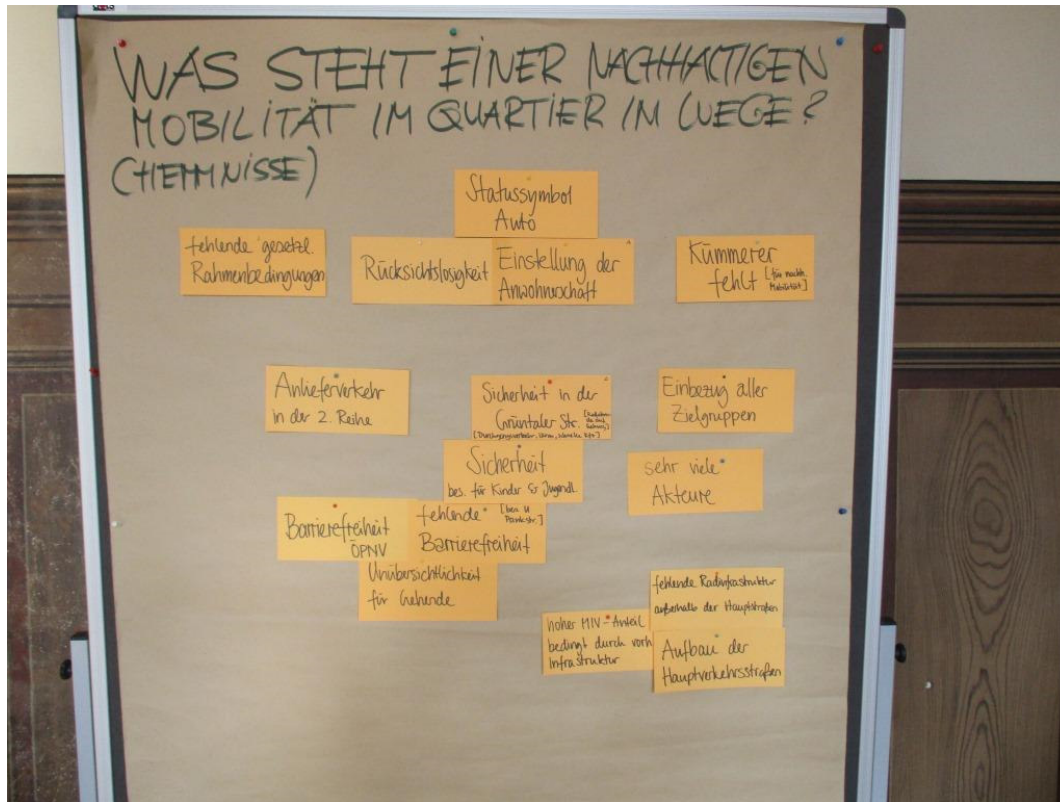 WAS STEHT EINER NACHHALTIGEN
MOBILITÄT IM QUARTIER IM WEGE?
(HEMMNISSE)
Statussymbol
Auto
fehlende gesetzl.
Rahmenbedingungen
Rücksichtslosigkeit
Einstellung der
Anwohnerschaft
Kümmerer
fehlt [für nachh.
Mobilität]
Anlieferverkehr
in der 2. Reihe
Sicherheit in der
Grüntaler Str.
Einbezug aller
Zielgruppen
Sicherheit
bes. für Kinder & Jugendl.
sehr viele
Akteure
Barrierefreiheit
ÖPNV
fehlende
Barrierefreiheit
Unübersichtlichkeit
für Gehende
fehlende Radinfrastruktur
außerhalb der Hauptstraßen
hoher MIV-Anteil
bedingt durch vorh.
Infrastruktur
Aufbau der
Hauptverkehrsstraßen